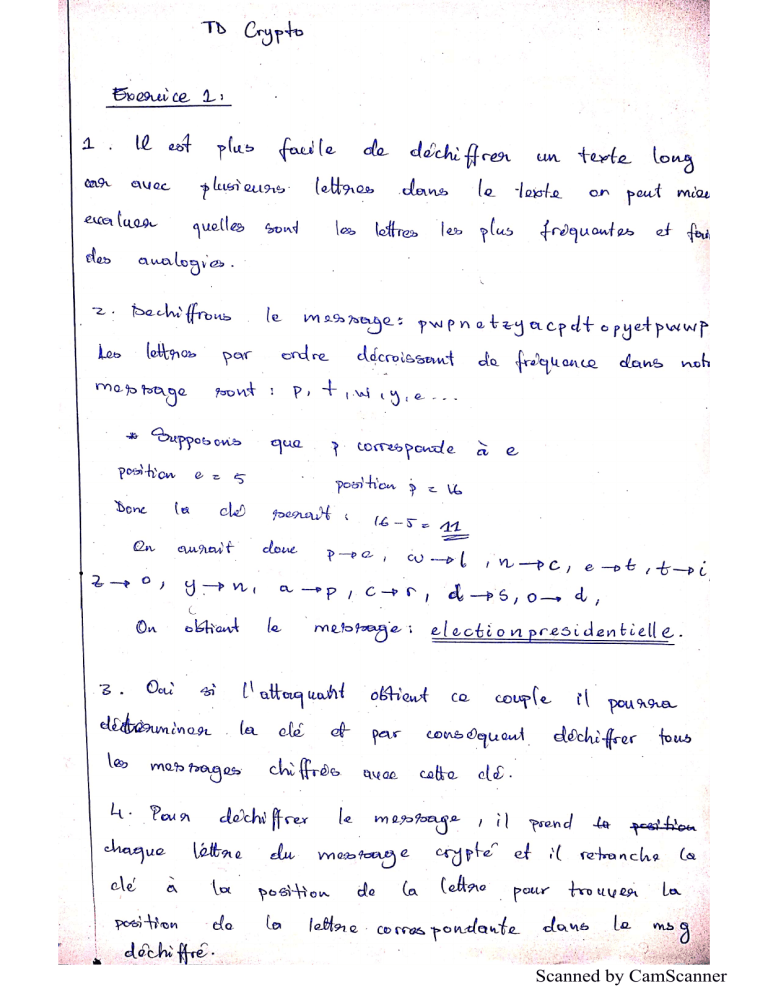 TD Crypto
Exercice 1:
1. Il est plus facile de déchiffrer un texte long
car avec plusieurs lettres dans le texte on peut mieu
evaluer quelles sont les lettres les plus fréquentes et fai
des analogies.
2. Dechiffrons le message: pwpnetzyacpdtopyetpwwp
Les lettres par ordre décroissant de fréquence dans notr
message sont : p, t, w, y, e ...
* Supposons que p corresponde à e
position e = 5 position p = 16
Donc la clé serait : 16-5 = 11
On aurait donc p→e, w→l, n→c, e→t, t→i
z→o, y→n, a→p, c→r, d→s, o→d,
On obtient le message: election presidentielle.
3. Oui si l'attaquant obtient ce couple il pourra
déterminer la clé et par conséquent déchiffrer tous
les messages chiffrés avec cette clé.
4. Pour déchiffrer le message, il prend la position
chaque lettre du message crypté et il retranche la
clé à la position de la lettre pour trouver la
position de la lettre correspondante dans le msg
déchiffré.
Scanned by CamScanner